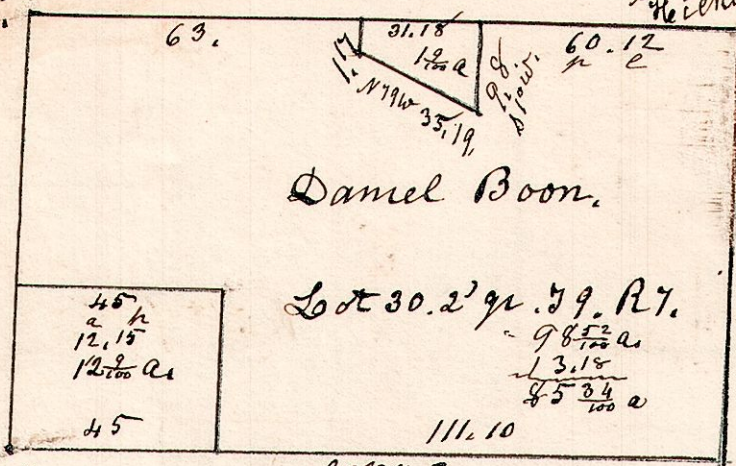 63.
31.18
1 9/100 a
1.17
N 79 W 35.19.
9.8.
S 10 W.
60.12
p l
Daniel Boon.
Lot 30. 2' qr. T 9. R 7.
98 52/100 a.
13.18
85 34/100 a
45
a p
12.15
12 9/100 a.
45
111.10